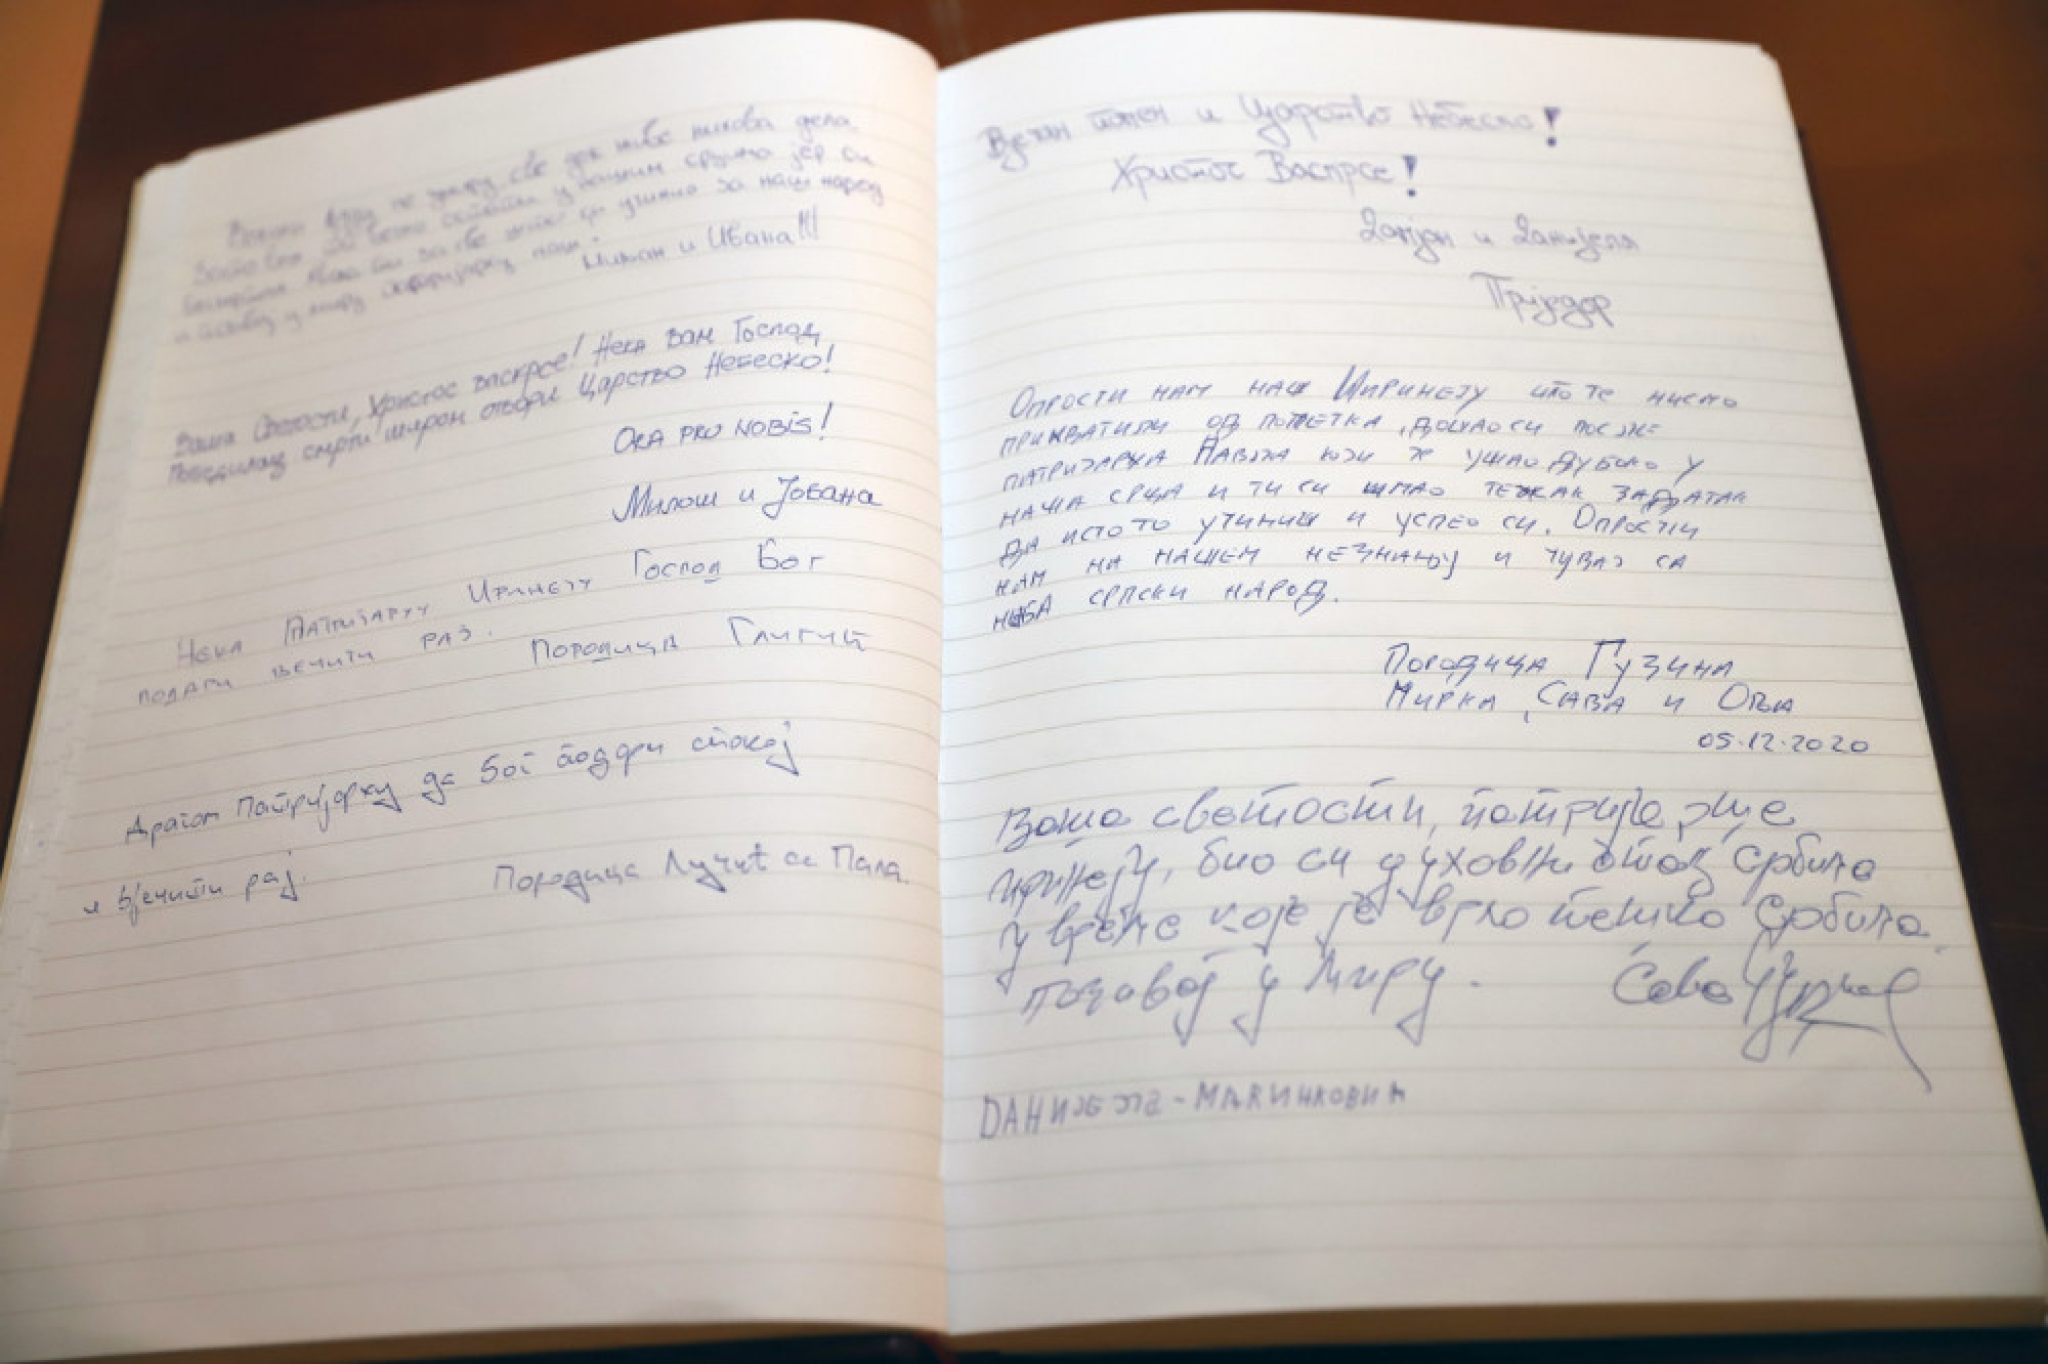 Велики људи не умиру све док живе њихова дела.
остати у нашим срцима јер си
за све што си учинио за наш народ
и почивај у миру патријарху наш.
Милан и Ивана!!!
Ваша Светости, Христос васкрсе! Нека Вам Господ,
Победилац смрти широм отвори Царство Небеско!
ORA PRO NOBIS!
Милош и Јована
Нека Патријарху Иринеју Господ Бог
подари вечити рај.
Породица Глигић
Драгом Патријарху да Бог подари спокој
и вјечити рај.
Породица Лучић са Пала.
Вјечан помен и Царство Небеско!
Христос Васкрсе!
Дајан и Данијела
Приједор
Опрости нам наш Иринеју што те нисмо
прихватили од почетка, дошао си после
патријарха Павла који је ушао дубоко у
наша срца и ти си имао тежак задатак
да исто то учиниш и успео си. Опрости
нам на нашем незнању и чувај са
неба српски народ.
Породица Гузина
Мирка, Сава и Ова
05.12.2020
Ваша светости, патријарше
Иринеју, био си духовни отац Србима
у време које је врло тешко Србима.
почивај у миру.
Сава
ДАНИЈЕЛА - МАРИНКОВИЋ